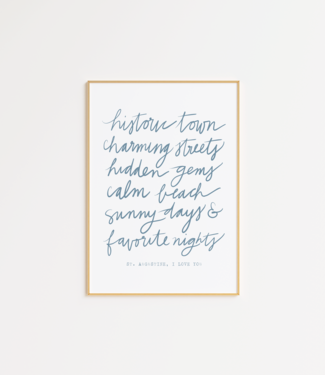 historic town
charming streets
hidden gems
calm beach
sunny days &
favorite nights
ST. AUGUSTINE, I LOVE YOU